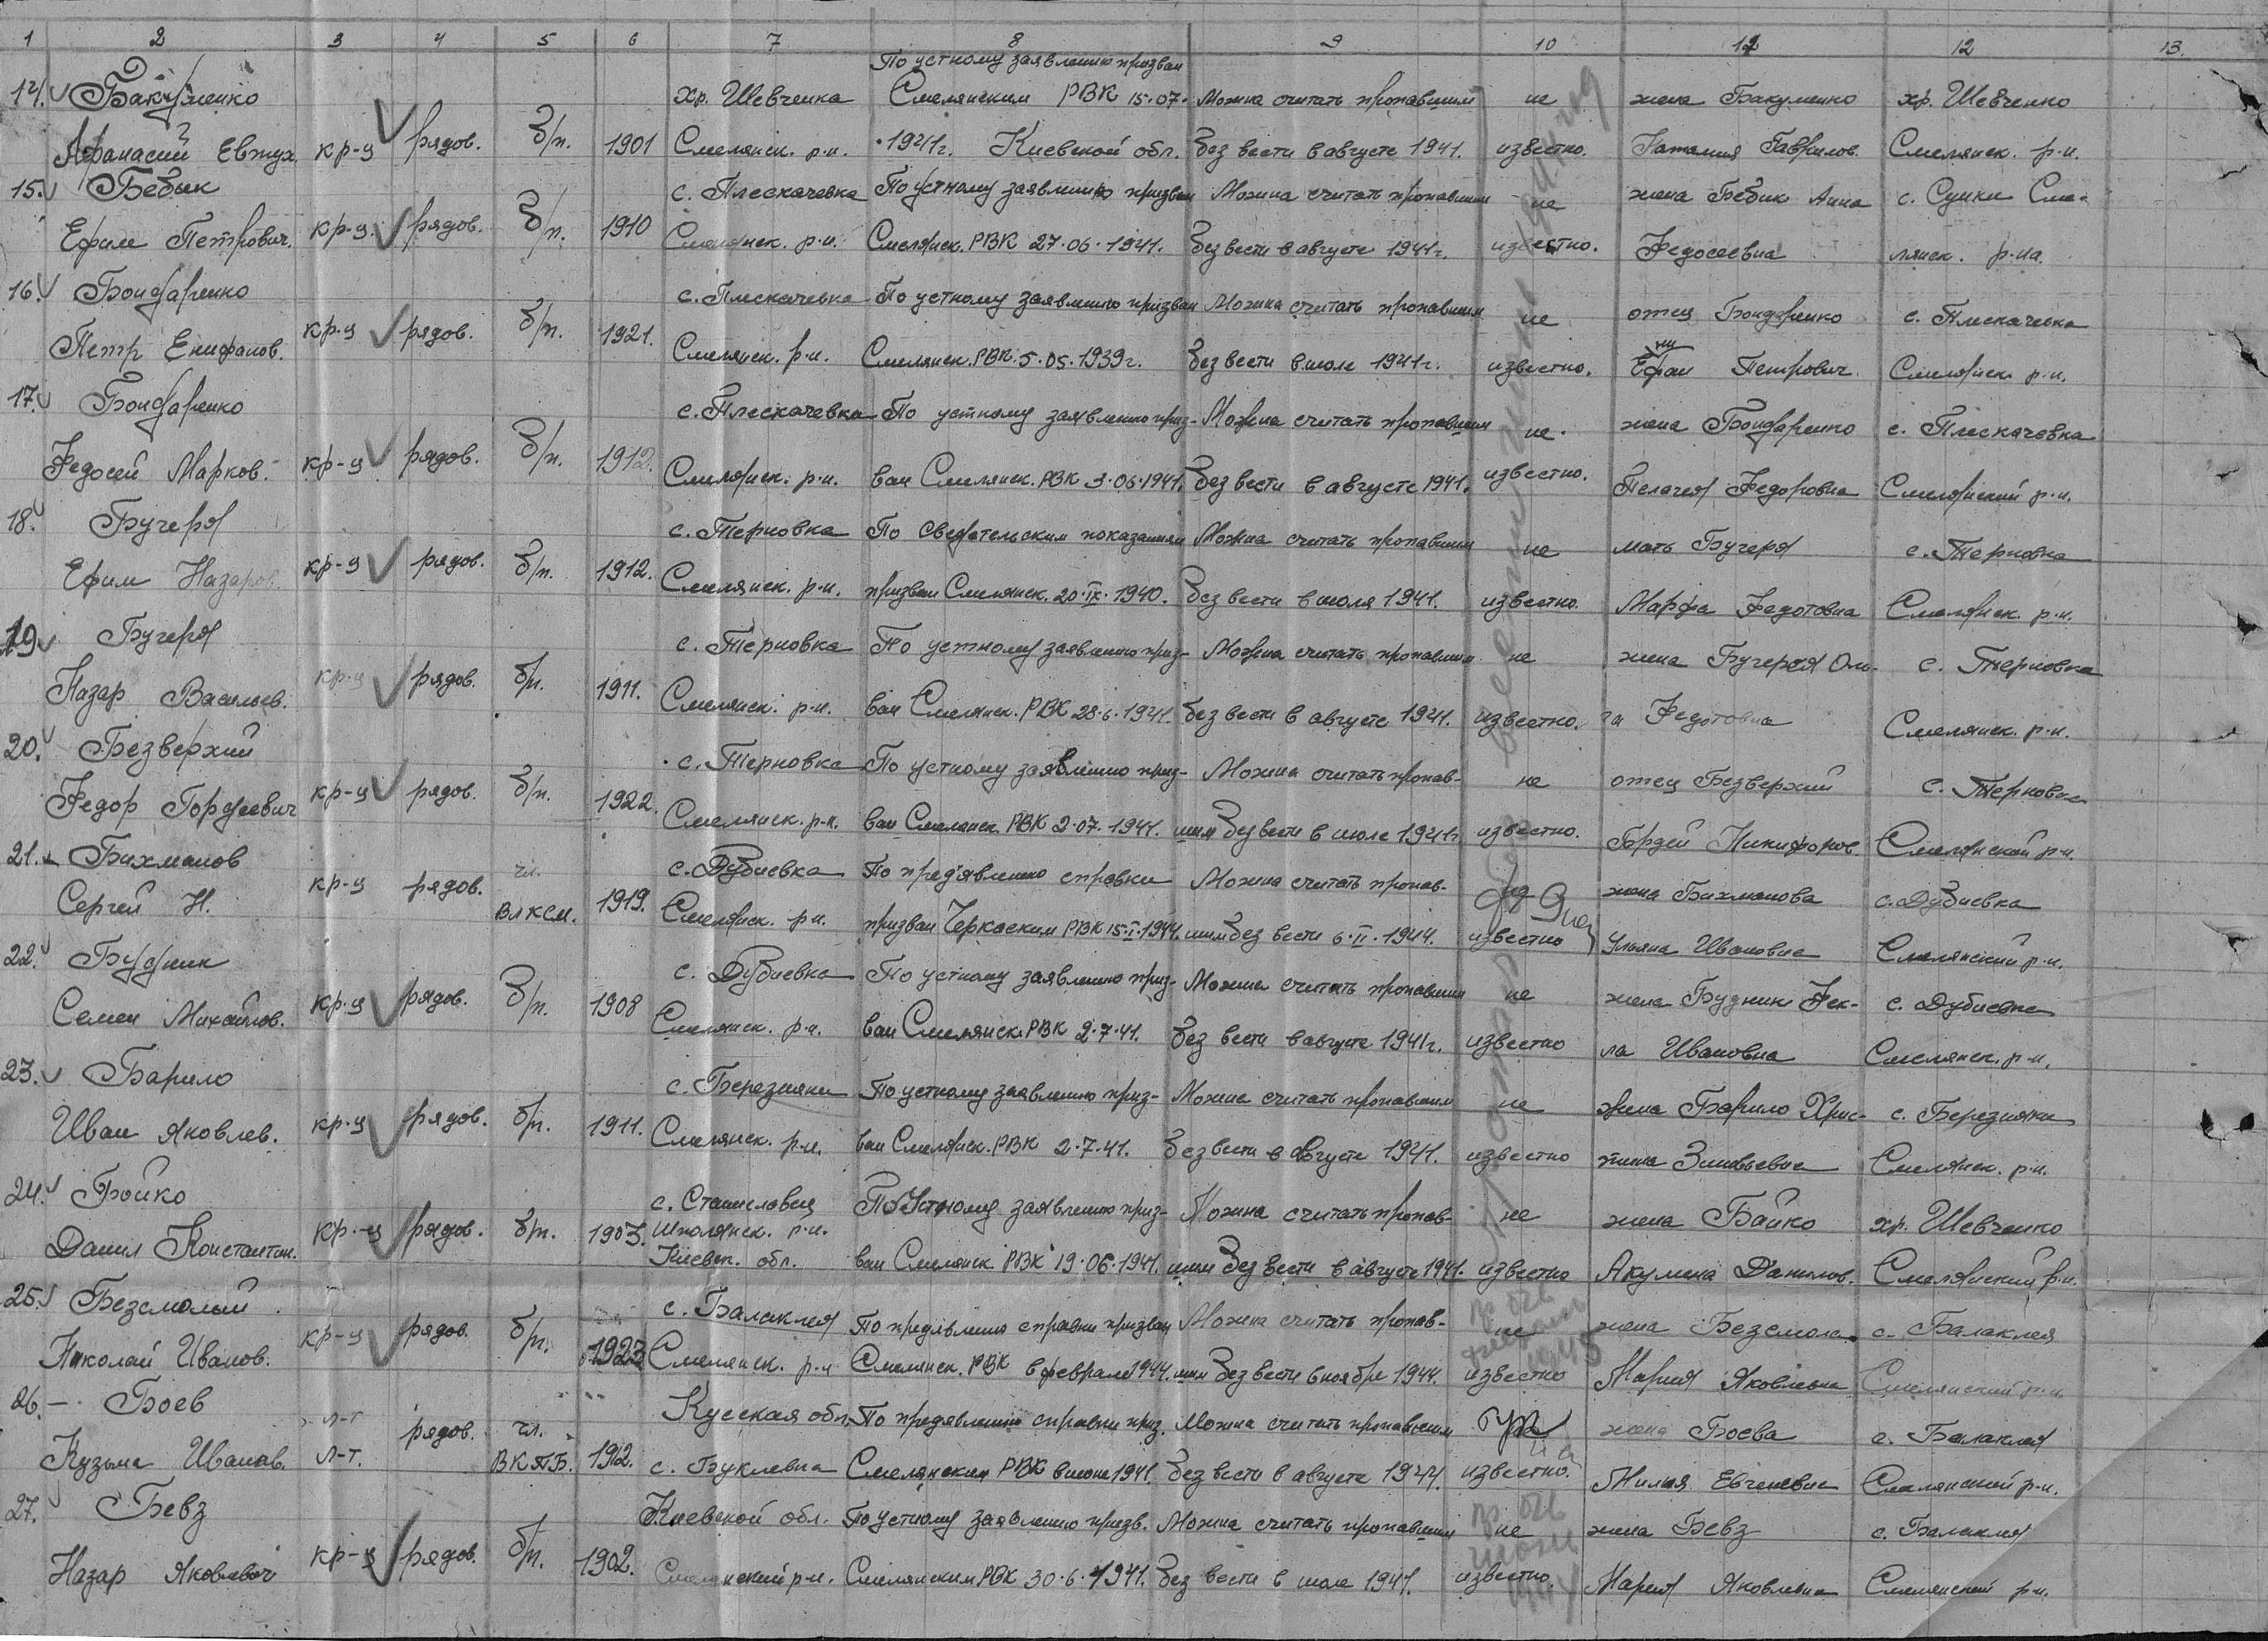 1 2 3 4 5 6 7 8 9 10 11 12 13.
По устному заявлению призван
14. Бакуменко хр. Шевченка Смелянским РВК 15.07. Можна считать пропавшим не жена Бакуменко хр. Шевченко
Афанасий Евтух. кр-ц рядов. б/п. 1901 Смелянск. р-н. 1941г. Киевской обл. без вести в августе 1941. известно. Гаврилов. Смелянск. р-н.
15. Бебик с. Плескачевка По устному заявлению призван Можна считать пропавшим не жена Бебик Анна с. Сунки Сме-
Ефим Петрович. кр-ц. рядов. б/п. 1910 Смелянск. р-н. Смелянск. РВК 27.06.1941. без вести в августе 1941г. известно. Федосеевна лянск. р-на.
16. Бондаренко с. Плескачевка По устному заявлению призван Можна считать пропавшим не отец Бондаренко с. Плескачевка
Петр Епифанов. кр-ц рядов. б/п. 1921. Смелянск. р-н. Смелянск. РВК. 5.05.1939г. без вести в июле 1941г. известно. Петрович. Смелянск. р-н.
17. Бондаренко с. Плескачевка По устному заявлению приз- Можна считать пропавшим не. жена Бондаренко с. Плескачевка
Федосей Марков. кр-ц рядов. б/п. 1912. Смелянск. р-н. ван Смелянск. РВК 3.06.1941. без вести в августе 1941. известно. Пелагея Федоровна Смелянский р-н.
18. Бучеря с. Терновка По сведетельским показаниям Можна считать пропавшим не мать Бучеря с. Терновка
Ефим Назаров. кр-ц рядов. б/п. 1912. Смелянск. р-н. призван Смелянск. 20.IX.1940. без вести в июля 1941. известно. Марфа Федотовна Смелянск. р-н.
19. Бучеря с. Терновка По устному заявлению приз- Можна считать пропавшим не жена Бучерая Оль- с. Терновка
Назар Васильев. кр-ц рядов. б/п. 1911. Смелянск. р-н. ван Смелянск. РВК 28.6.1941. без вести в августе 1941. известно. га Федотовна Смелянск. р-н.
20. Безверхий с. Терновка По устному заявлению приз- Можна считать пропав- не отец Безверхий с. Терновка
Федор Гордеевич кр-ц рядов. б/п. 1922. Смелянск. р-н. ван Смелянск. РВК 2.07.1941. шим без вести в июле 1941г. известно. Гордей Никифоров. Смелянской р-н.
21. Бихманов с. Дубиевка По предявлению справки Можна считать пропав- жена Бихманова с. Дубиевка
Сергей Н. кр-ц рядов. чл. ВЛКСМ. 1919. Смелянск. р-н. призван Черкаским РВК 15.I.1944. шим без вести 6.II.1944. известно Ульяна Ивановна Смелянский р-н.
22. Будник с. Дубиевка По устному заявлению приз- Можна считать пропавшим не жена Будник Фек- с. Дубиевка
Семен Михайлов. кр-ц рядов. б/п. 1908 Смелянск. р-н. ван Смелянск. РВК 2.7.41. без вести в августе 1941г. известно ла Ивановна Смелянск. р-н.
23. Барило с. Березняки По устному заявлению приз- Можна считать пропавшим не жена Барило Хрис- с. Березняки
Иван Яковлев. кр-ц рядов. б/п. 1911. Смелянск. р-н. ван Смелянск. РВК 2.7.41. без вести в августе 1941. известно тина Зиновьевна Смелянск. р-н.
24. Бойко с. Станиславец По устному заявлению приз- Можна считать пропав- не жена Бойко хр. Шевченко
Шполянск. р-н.
Данил Константин. кр-ц рядов. б/п. 1903. Киевск. обл. ван Смелянск. РВК 19.06.1941. шим без вести в августе 1941. известно Акулина Данилов. Смелянский р-н.
25. Безсмолый с. Балаклея По предявлению справки призван Можна считать пропав- не жена Безсмола с. Балаклея
Николай Иванов. кр-ц рядов. б/п. 1923 Смелянск. р-н Смелянск. РВК в феврале 1944. шим без вести в ноябре 1944. известно Мария Яковлевна Смелянский р-н
26. Боев л-т Курская обл. По предявлению справки приз. Можна считать пропавшим жена Боева с. Балаклея
Кузьма Иванов. л-т. рядов. чл. ВКПБ. 1912. с. Смелянским РВК в июне 1941. без вести в августе 1944. известно. Евгеневна Смелянский р-н.
27. Бевз Киевской обл. По устному заявлению призв. Можна считать пропавшим не жена Бевз с. Балаклея
Назар Яковлевич кр-ц рядов. б/п. 1902. Смелянский р-н. Смелянским РВК 30.6.1941. без вести в июле 1941. известно. Мария Яковлевна Смелянский р-н.